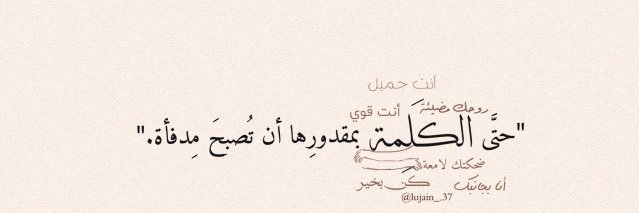 أنت جميل
روحك مضيئة
أنت قوي
"حتَّى الكَلَمة بمقدورِها أن تُصبحَ مِدفأة."
ضحكتك لامعة
أنا بجانبك
كُن بخير
@lujain_.37